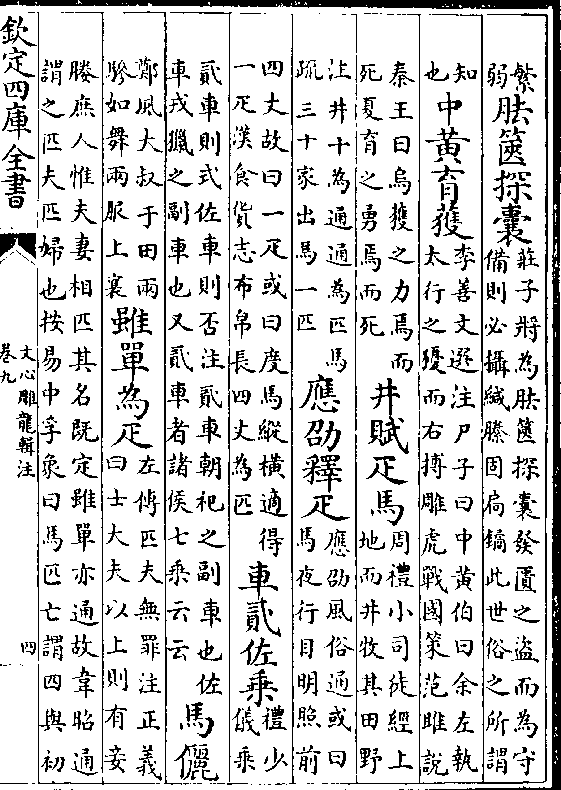 繁弱胠篋探囊莊子將為胠篋探囊發匱之盗而為守備則必攝緘縢固扃鐍此世俗之所謂
知也中黄育獲李善文選注尸子曰中黄伯曰余左執太行之獶而右搏雕虎戰國策范雎說
秦王曰烏獲之力焉而死夏育之勇焉而死井賦疋馬周禮小司徒經上地而井牧其田野
注井十為通通為匹馬疏三十家出馬一匹應劭釋疋應劭風俗通或曰馬夜行目明照前
四丈故曰一疋或曰度馬縱横適得一疋漢食貨志布帛長四丈為匹車貳佐乗禮少儀乗
貳車則式佐車則否注貳車朝祀之副車也佐車戎獵之副車也又貳車者諸侯七乗云云馬儷
鄭風大叔于田兩驂如舞兩服上襄雖單為疋左傳匹夫無罪注正義曰士大夫以上則有妾
媵庶人惟夫妻相匹其名既定雖單亦通故韋昭通謂之匹夫匹婦也按易中孚象曰馬匹亡謂四與初
欽定四庫全書
文心雕龍輯注
卷九
四